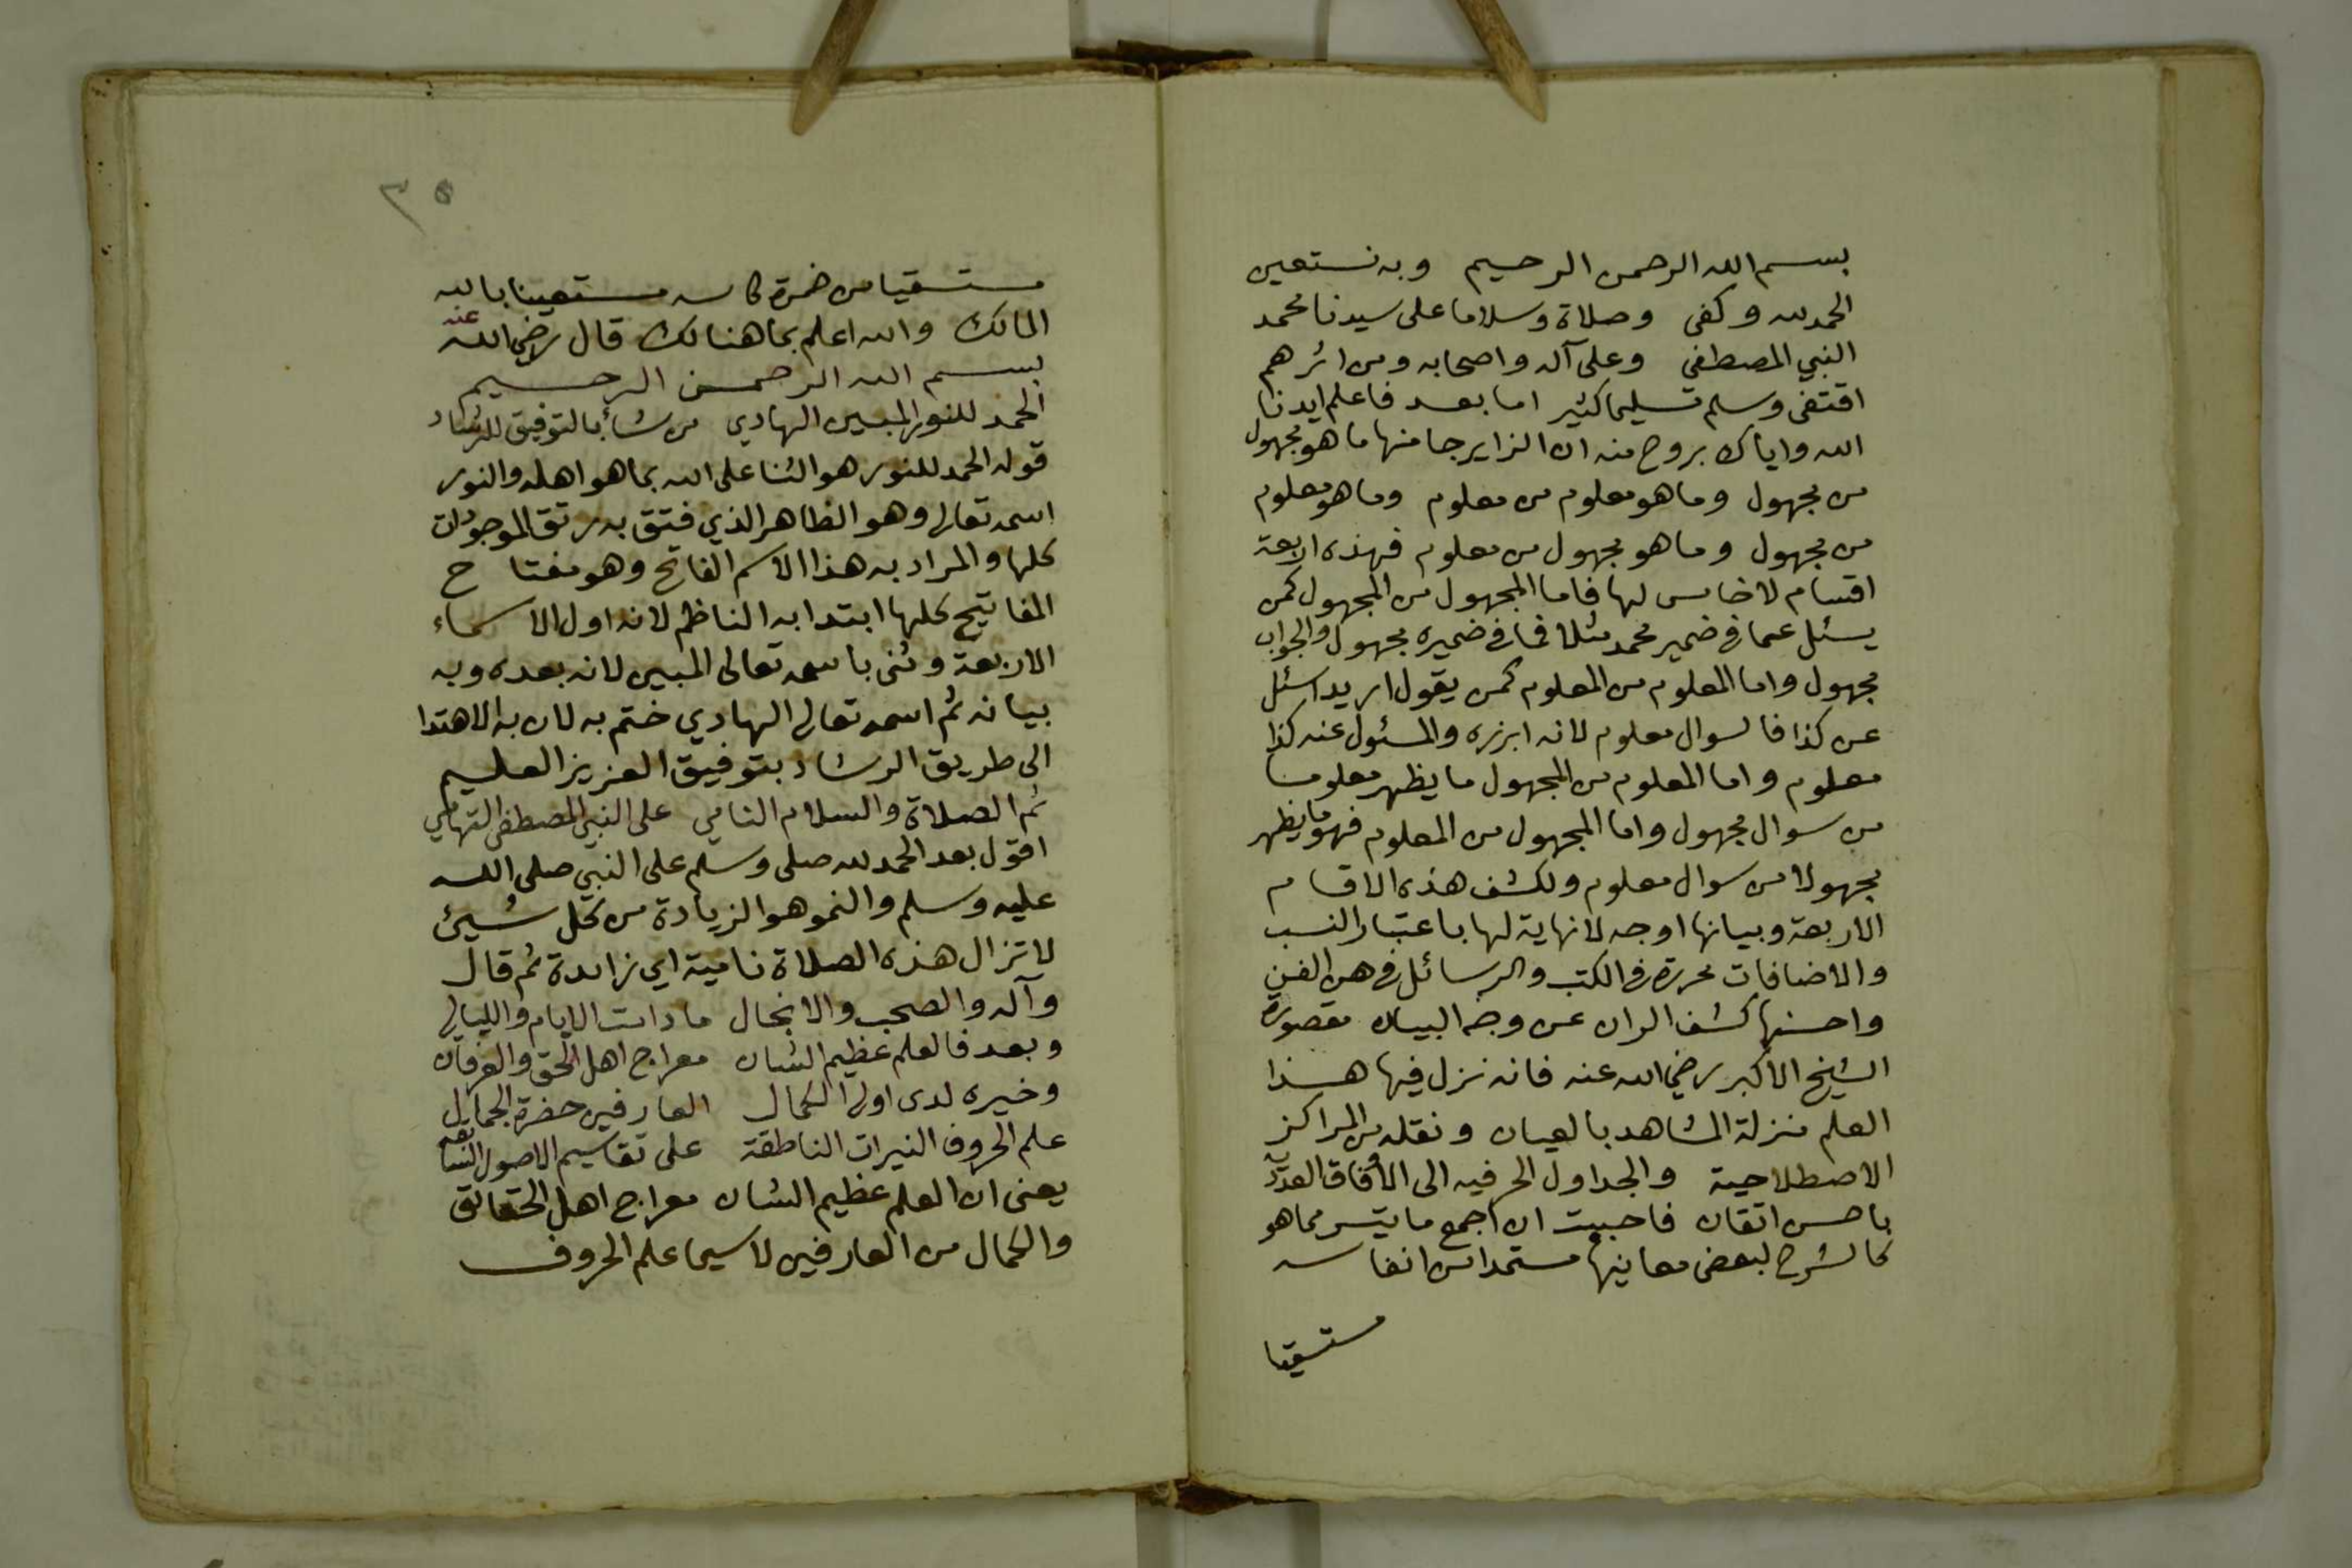 بسم الله الرحمن الرحيم وبه نستعين
الحمد لله وكفى وصلاة وسلاما على سيدنا محمد
النبي المصطفى وعلى آله واصحابه ومن اثرهم
اقتفى وسلم تسليما كثير اما بعد فاعلم ايدنا
الله واياك بروح منه ان الزايرجا منها ما هو مجهول
من مجهول وما هو معلوم من معلوم وما هو معلوم
من مجهول وما هو مجهول من معلوم فهذه اربعة
اقسام لا خامس لها فاما المجهول من المجهول كمن
يسئل عما في ضمير محمد مثلا فما في ضميره مجهول والجواب
مجهول واما المعلوم من المعلوم كمن يقول اريد اسئل
عن كذا فالسوال معلوم لانه ابرزه والمسئول عنه كذا
معلوم واما المعلوم من المجهول ما يظهر معلوما
من سوال مجهول واما المجهول من المعلوم فهو ما يظهر
مجهولا من سوال معلوم ولكشف هذه الاقسام
الاربعة وبيانها اوجه لا نهاية لها باعتبار النسب
والاضافات محررة في الكتب والرسائل في هذا الفن
واحسنها كشف الران عن وجه البيان مقصورة
الشيخ الاكبر رضي الله عنه فانه نزل فيها هذا
العلم منزلة المشاهد بالعيان ونقله من المراكز
الاصطلاحية والجداول الحرفيه الى الأوفاق العددية
باحسن اتقان فاحببت ان اجمع ما يتسر مما هو
كالشرح لبعض معانيها مستمدا من انفاسه
مستسقيا
٣٥
مستسقيا من خمرة كاسه مستعينا بالله
المالك والله اعلم بما هنالك قال رضي الله عنه
بسم الله الرحمن الرحيم
الحمد للنور المبين الهادي من شأ بالتوفيق للرشاد
قوله الحمد للنور هو الثنا على الله بما هو اهله والنور
اسمه تعالى وهو الظاهر الذي فتق به رتق الموجودات
كلها والمراد به هذا الاسم الفاتح وهو مفتاح
المفاتيح كلها ابتدا به الناظم لانه اول الاسماء
الاربعة وثنى باسمه تعالى المبين لانه بعده وبه
بيانه ثم اسمه تعالى الهادي ختم به لان به الاهتدا
الى طريق الرشاد بتوفيق العزيز العليم
ثم الصلاة والسلام النامي على النبي المصطفى التهامي
اقول بعد الحمد لله صلى وسلم على النبي صلى الله
عليه وسلم والنمو هو الزيادة من كل شيئ
لا تزال هذه الصلاة نامية اي زائدة ثم قال
وآله والصحب والانجال ما دامت الايام والليالي
وبعد فالعلم عظيم الشان معراج اهل الحق والعرفان
وخيره لدى اولى الكمال العارفين حضرة الجمال
علم الحروف النيرات الناطقة على تقاسيم الاصول
يعني ان العلم عظيم الشان معراج اهل الحقائق
والكمال من العارفين لا سيما علم الحروف